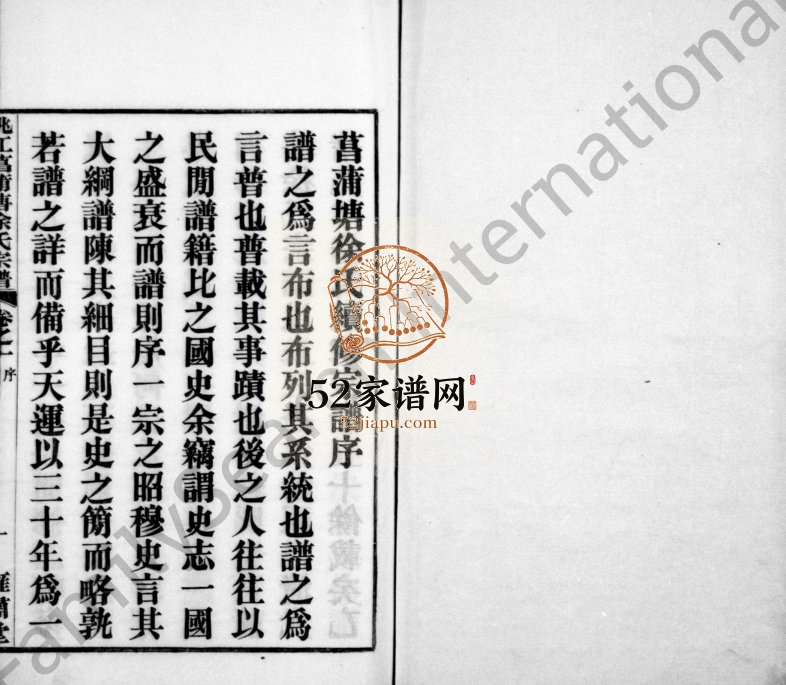 菖蒲塘徐氏續修宗譜序
譜之爲言布也布列其系統也譜之爲
言普也普載其事蹟也後之人往往以
民閒譜籍比之國史余竊謂史志一國
之盛衰而譜則序一宗之昭穆史言其
大綱譜陳其細目則是史之簡而略孰
若譜之詳而備乎天運以三十年爲一
姚江菖蒲塘徐氏宗譜
卷之一 序
一
52家谱网
52jiapu.com
FamilySearch International